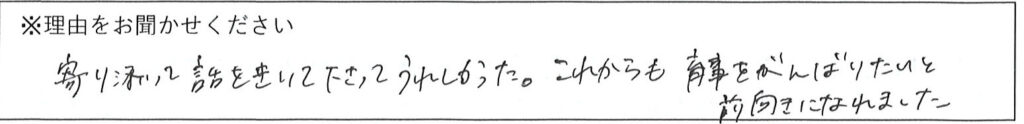 ※理由をお聞かせください
寄り添って話を聞いて下さってうれしかった。これからも育事をがんばりたいと
前向きになれました